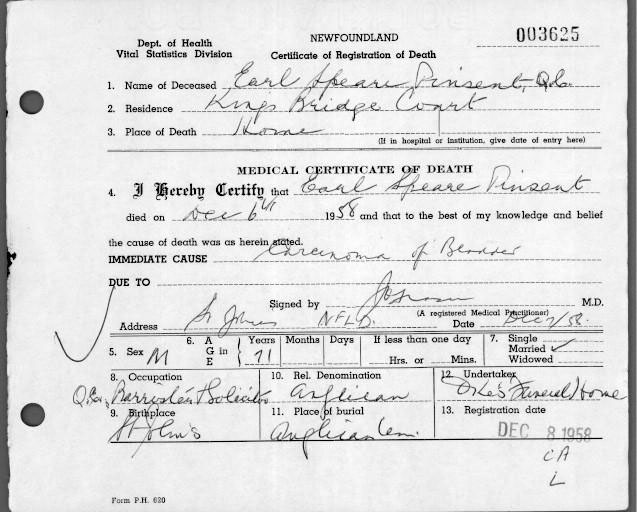 NEWFOUNDLAND
003625
Dept. of Health
Vital Statistics Division
Certificate of Registration of Death
1. Name of Deceased Earl Speare Pinsent, Q.C.
2. Residence Kings Bridge Court
3. Place of Death Home
(If in hospital or institution, give date of entry here)
MEDICAL CERTIFICATE OF DEATH
4. I Hereby Certify that Earl Speare Pinsent
died on Dec 6th 1958 and that to the best of my knowledge and belief
the cause of death was as herein stated.
IMMEDIATE CAUSE Carcinoma of Bladder
DUE TO
Signed by M.D.
(A registered Medical Practitioner)
Address St Johns NFLD. Date Dec 7/58.
5. Sex M 6. AGE in Years 71 Months Days If less than one day Hrs. or Mins. 7. Single Married ✓ Widowed
8. Occupation 10. Rel. Denomination 12. Undertaker
Q.C., Barrister & Solicitor Anglican Funeral Home
9. Birthplace 11. Place of burial 13. Registration date
St John's Anglican Cem. DEC 8 1958
CA
L
Form P.H. 620